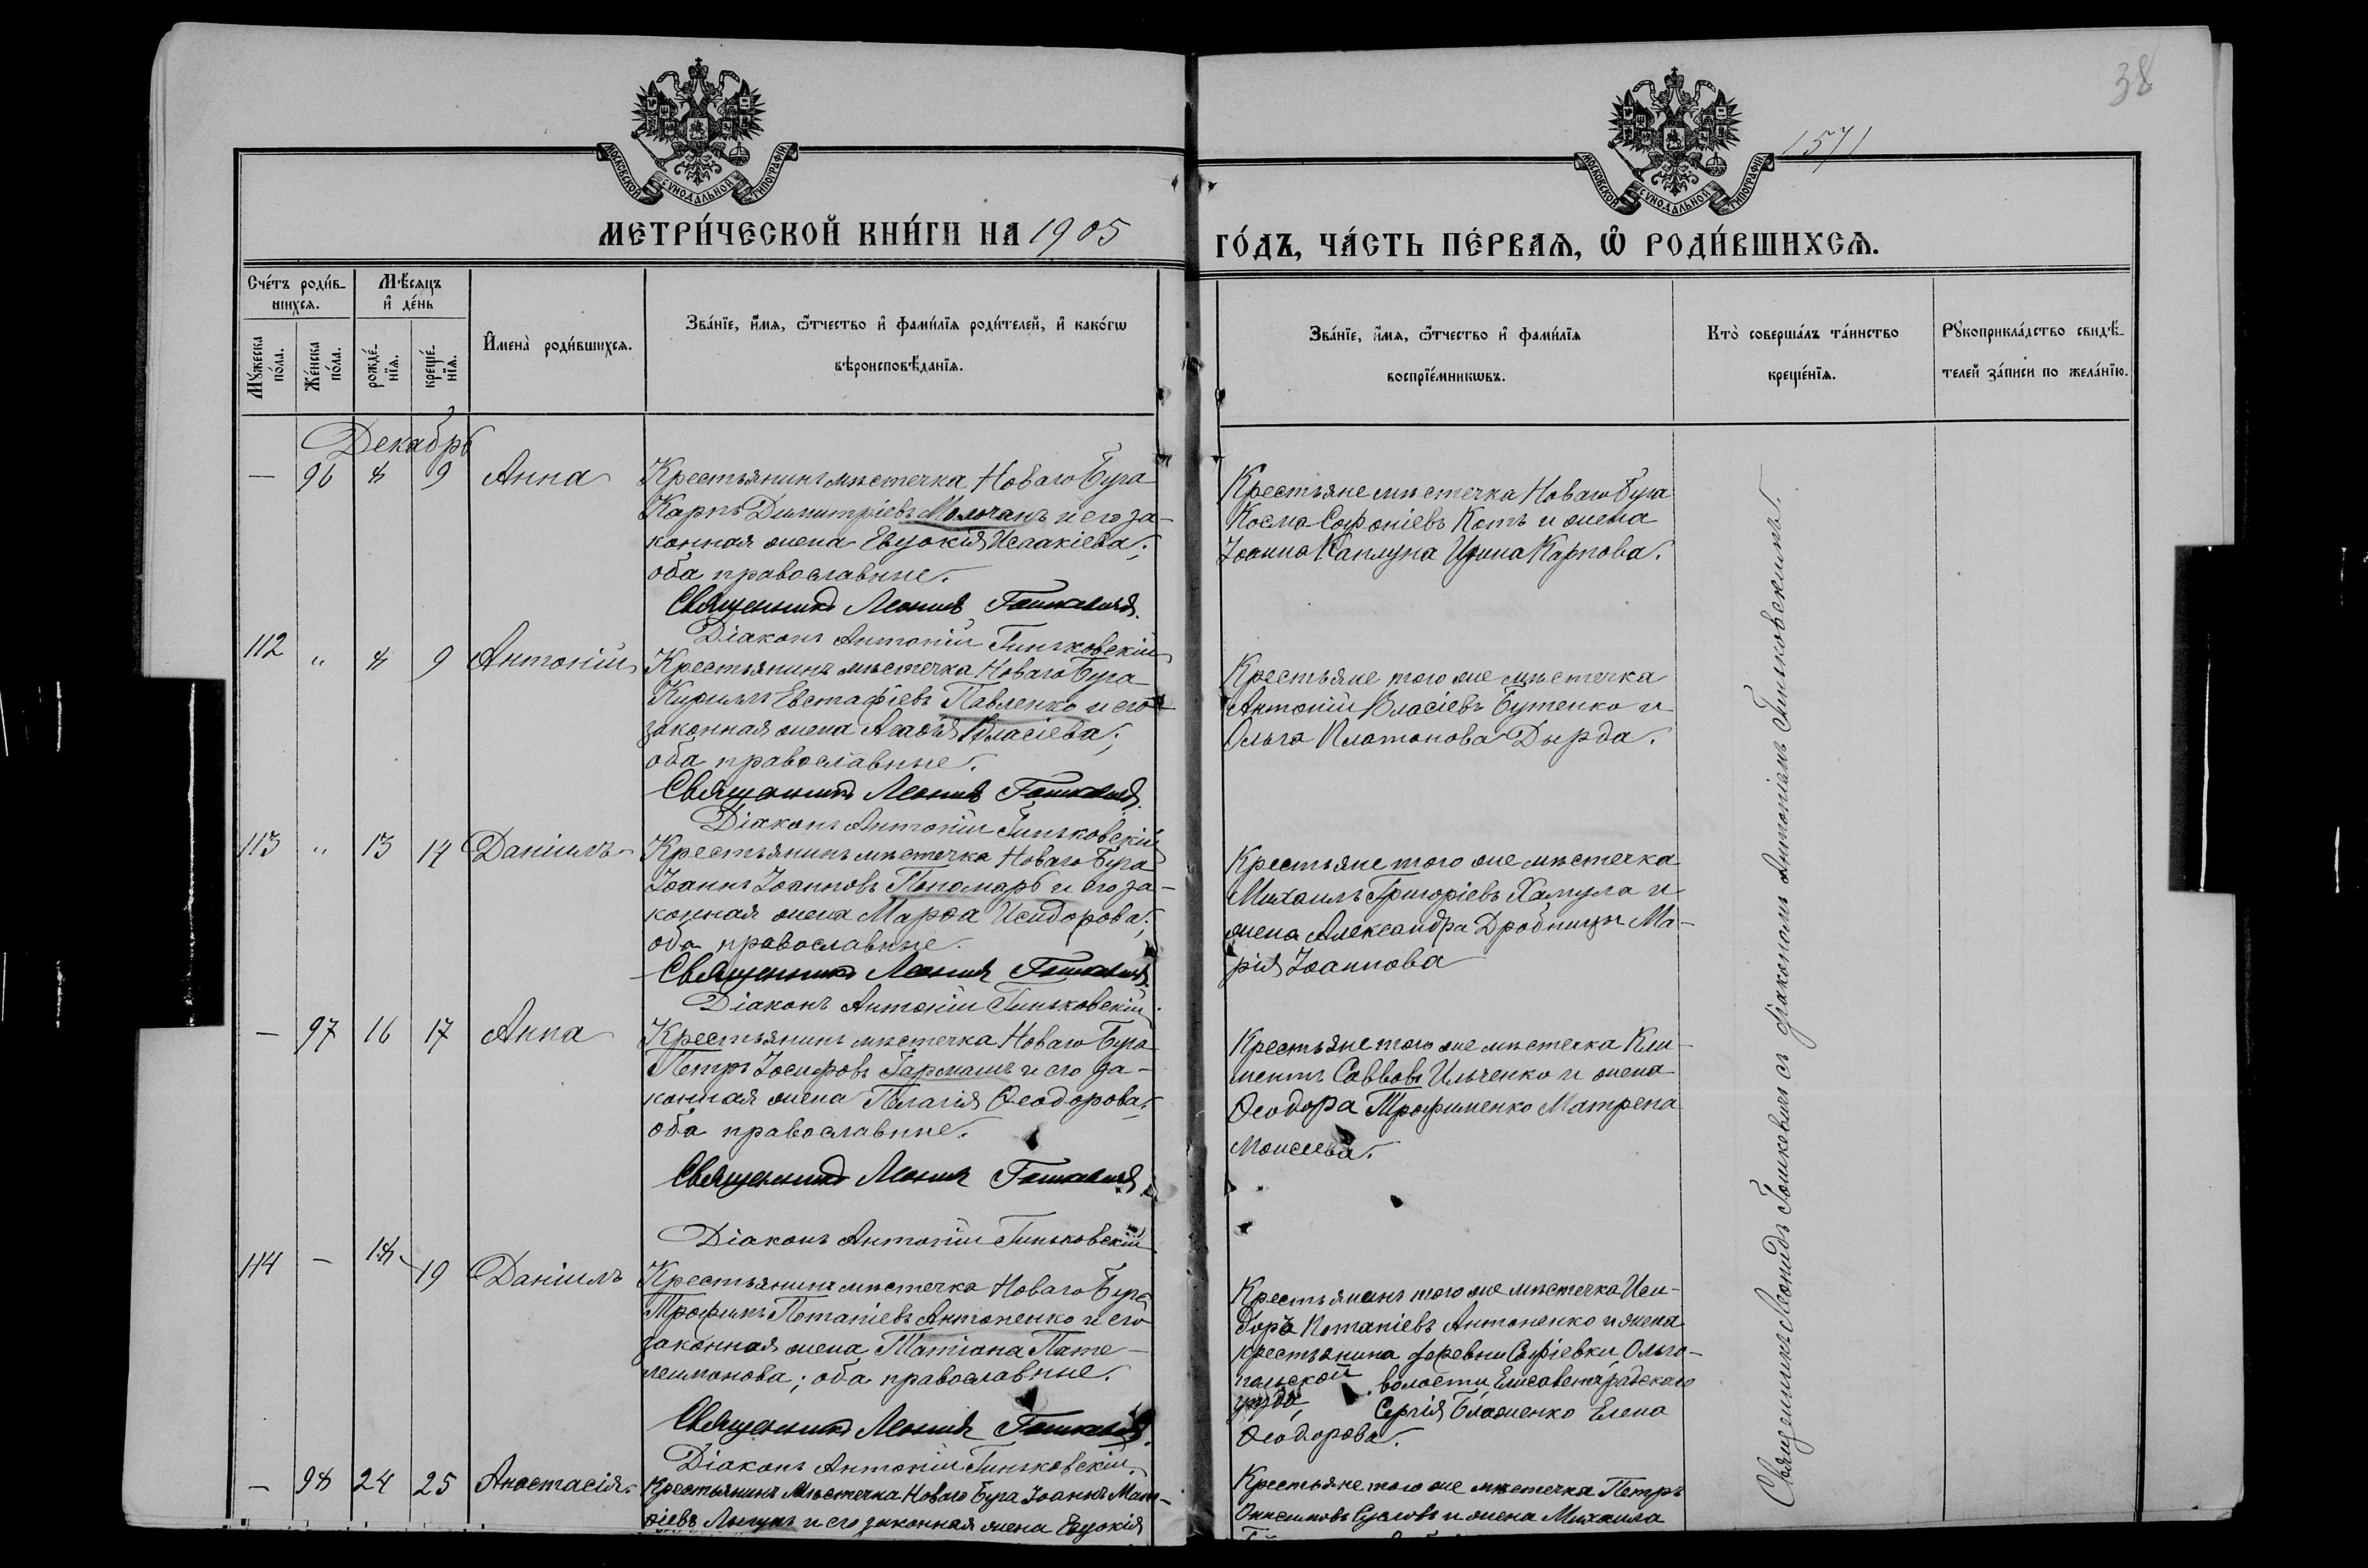 38
1571
МОСКОВСКОЙ СУНОДАЛЬНОЙ ТИПОГРАФІИ
МОСКОВСКОЙ СУНОДАЛЬНОЙ ТИПОГРАФІИ
МЕТРИ́ЧЕСКОЙ КНИ́ГИ НА 1905
ГО́ДЪ, ЧА́СТЬ ПЕ́РВАѦ, Ѽ РОДИ́ВШИХСѦ.
Сче́тъ роди́в-
шихсѧ.
Мѣ́сѧцъ
и҆ де́нь
Мꙋ́жеска
по́ла.
Же́нска
по́ла.
рожде́-
нїѧ.
креще́-
нїѧ.
И҆мена̀ роди́вшихсѧ.
Зва́нїе, и҆́мѧ, ѻ҆́тчество и҆ фами́лїѧ роди́телей, и҆ како́гѡ
вѣроисповѣ́данїѧ.
Зва́нїе, и҆́мѧ, ѻ҆́тчество и҆ фами́лїѧ
воспрїе́мникѡвъ.
Кто̀ соверша́лъ та́инство
креще́нїѧ.
Рꙋкоприкла́дство свидѣ́-
телей за́писи по жела́нїю.
Декабрь
— 96 8 9 Анна
Крестьянинъ мѣстечка Новаго Буга
Карпъ Димитріевъ Молчанъ и его за-
конная жена Евдокія Исаакіева;
оба православные.
Священникъ Леонидъ Гошкевичъ.
Діаконъ Антоній Гиньковскій
Крестьяне мѣстечка Новаго Буга
Косма Софоніевъ Котъ и жена
Іоанна Каплуна Ирина Карпова.
112 " 8 9 Антоній
Крестьянинъ мѣстечка Новаго Буга
Кириллъ Евстафіевъ Павленко и его
законная жена Агафія Власіева;
оба православные.
Священникъ Леонидъ Гошкевичъ.
Діаконъ Антоній Гиньковскій
Крестьяне того же мѣстечка
Антоній Власіевъ Бутенко и
Ольга Платонова Дырда.
113 " 13 14 Даніилъ
Крестьянинъ мѣстечка Новаго Буга
Іоаннъ Іоанновъ Пономарь и его за-
конная жена Марѳа Исидорова;
оба православные.
Священникъ Леонидъ Гошкевичъ.
Діаконъ Антоній Гиньковскій.
Крестьяне того же мѣстечка
Михаилъ Григоріевъ Хамула и
жена Александра Дробницы Ма-
рія Іоаннова
— 97 16 17 Анна
Крестьянинъ мѣстечка Новаго Буга
Петръ Іосифовъ Гармашъ и его за-
конная жена Пелагія Ѳеодорова;
оба православные.
Священникъ Леонидъ Гошкевичъ.
Діаконъ Антоній Гиньковскій
Крестьяне того же мѣстечка Кли-
ментъ Саввовъ Ильченко и жена
Ѳеодора Трофименко Матрена
Моисеева.
114 — 18 19 Даніилъ
Крестьянинъ мѣстечка Новаго Буга
Трофимъ Потапіевъ Антоненко и его
законная жена Татіана Панте-
леимонова; оба православные.
Священникъ Леонидъ Гошкевичъ.
Діаконъ Антоній Гиньковскій.
Крестьянинъ того же мѣстечка Иси-
доръ Потапіевъ Антоненко и жена
крестьянина деревни Софіевки, Ольго-
польской волости Елисаветградскаго
уѣзда, Сергія Блаженко Елена
Ѳеодорова.
— 98 24 25 Анастасія
Крестьянинъ мѣстечка Новаго Буга Іоаннъ Мат-
ѳіевъ и его законная жена Евдокія
Крестьяне того же мѣстечка Петръ
Онисимовъ Сусловъ и жена Михаила
Священникъ Леонидъ Гошкевичъ съ діакономъ Антоніемъ Гиньковскимъ.